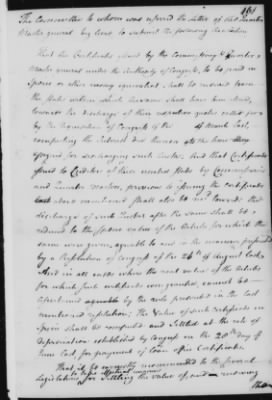 161
The Committee to whom was referred the letter of the Quarter
Master general beg leave to submit the following Resolution
That the Certificates issued by the Commissary & Quarter
Master general under the authority of Congress, to be paid in
Specie or other money equivalent shall be received from
the States within which the same shall have been issued,
towards the discharge of their respective quotas called for
by the resolution of Congress of the 4 March last,
computing the Interest due thereon at the time
for discharging such Certificates And that Certificates
issued to Creditors of these united States by Commissaries
and Quarter Masters, previous to issuing the certificates
last above mentioned shall also be towards the
discharge of such after the same shall be
reduced to the value of the Articles for which the
same were given, agreeable to and in the manner prescribed
by a Resolution of Congress of the 26th of August last,
And in all cases where the real value of the Articles
for which such certificates were granted, cannot be
ascertained agreeable by the rule prescribed in the last
mentioned resolution; The Value of such certificates in
Specie shall be computed and settled at the rate of
depreciation established by Congress on the 28th day of
June last for payment of Loan office Certificates.
That it be earnestly recommended to the several
Legislatures
for settling the value of, paid